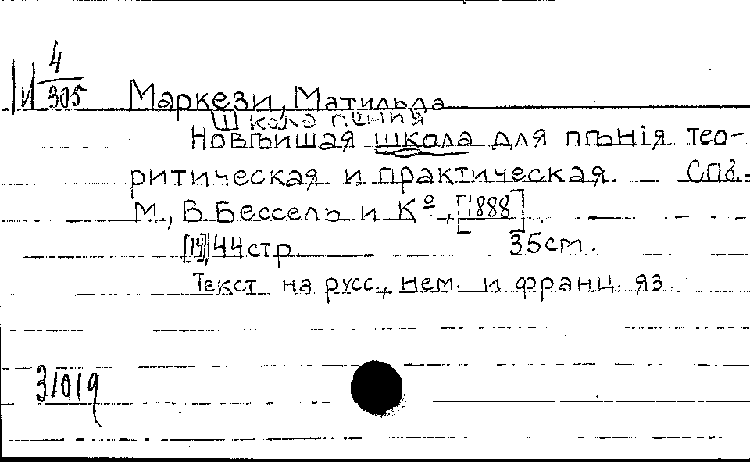 И 4/305
Маркези, Матильда
Школа пения
Новѣйшая школа для пѣнія тео-
ритическая и практическая. Спб.-
М., В. Бессель и Кº, [1888]
[14], 44 стр. 35 cm.
Текст на русс., нем. и франц. яз.
31019